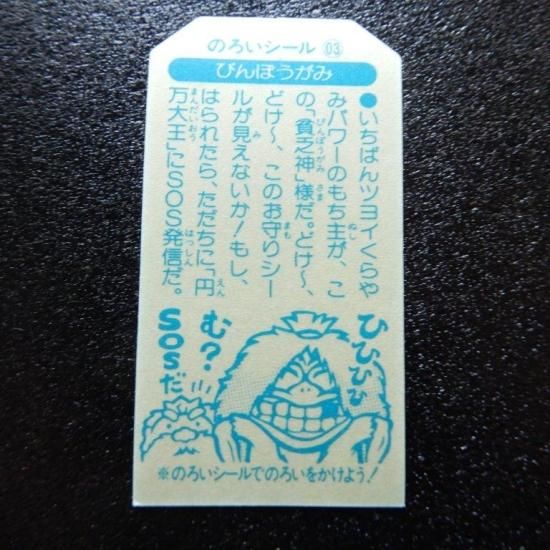 のろいシール 03
びんぼうがみ
●いちばんツヨイくらや
みパワーのもち主が、こ
の「貧乏神」様だ。どけ〜、
どけ〜、このお守りシー
ルが見えないか！もし、
はられたら、ただちに「円
万大王」にSOS発信だ。
ひひひひ
む？
SOSだ
※のろいシールでのろいをかけよう！